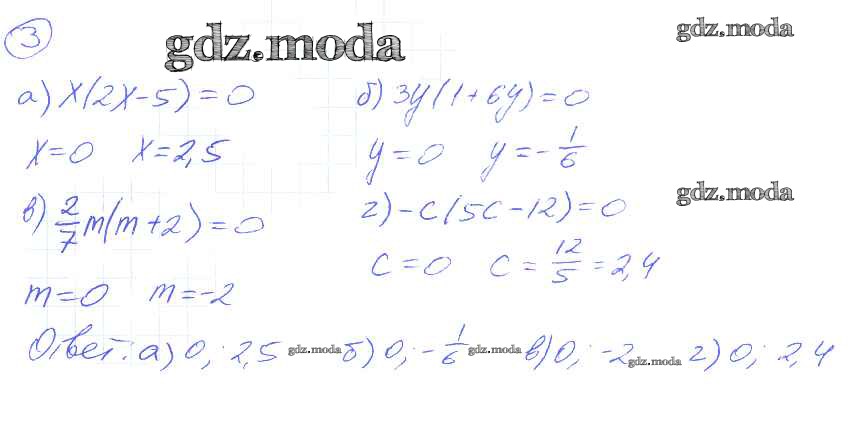 3
gdz.moda
gdz.moda
а) x(2x-5)=0
б) 3y(1+6y)=0
x=0 x=2,5
y=0 y=-1/6
gdz.moda
в) 2/7 m(m+2)=0
г) -c(5c-12)=0
m=0 m=-2
c=0 c=12/5=2,4
Ответ: а) 0; 2,5 gdz.moda б) 0; -1/6 gdz.moda в) 0; -2 gdz.moda г) 0; 2,4